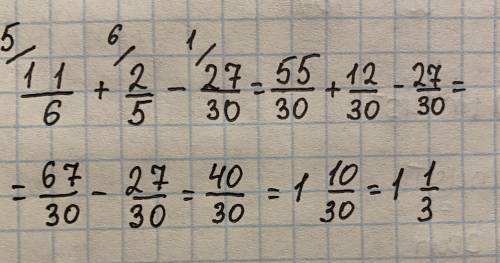 5/ 11/6 + 6/ 2/5 - 1/ 27/30 = 55/30 + 12/30 - 27/30 =
= 67/30 - 27/30 = 40/30 = 1 10/30 = 1 1/3